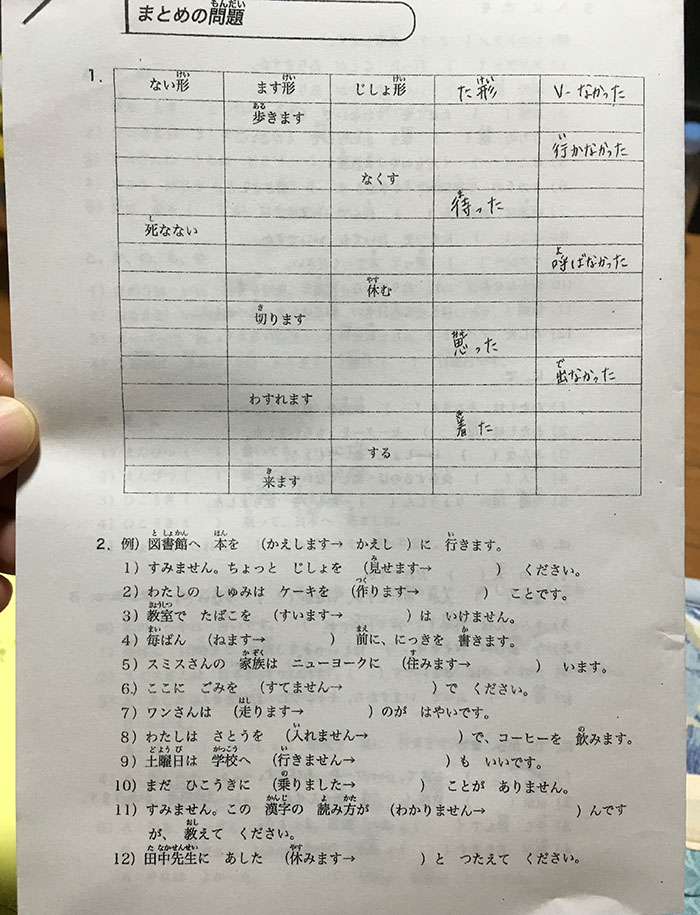 もんだい
まとめの問題
1.
けい けい けい けい
ない形 ます形 じしょ形 た形 V-なかった
ある
歩きます
い
行かなかった
なくす
ま
待った
し
死なない
よ
呼ばなかった
やす
休む
き
切ります
思った
で
出なかった
わすれます
き
着た
する
き
来ます
と しょかん ほん い
2. 例）図書館へ 本を （かえします→ かえし ）に 行きます。
み
1）すみません。ちょっと じしょを （見せます→ ） ください。
つく
2）わたしの しゅみは ケーキを （作ります→ ） ことです。
きょうしつ
3）教室で たばこを （すいます→ ）は いけません。
まい まえ か
4）毎ばん （ねます→ ） 前に、にっきを 書きます。
か ぞく す
5）スミスさんの 家族は ニューヨークに （住みます→ ） います。
6.）ここに ごみを （すてません→ ）で ください。
はし
7）ワンさんは （走ります→ ）のが はやいです。
い の
8）わたしは さとうを （入れません→ ）で、コーヒーを 飲みます。
どよう び がっこう い
9）土曜日は 学校へ （行きません→ ）も いいです。
の
10）まだ ひこうきに （乗りました→ ） ことが ありません。
かんじ よ かた
11）すみません。この 漢字の 読み方が （わかりません→ ）んです
おし
が、教えて ください。
た なかせんせい やす
12）田中先生に あした （休みます→ ）と つたえて ください。